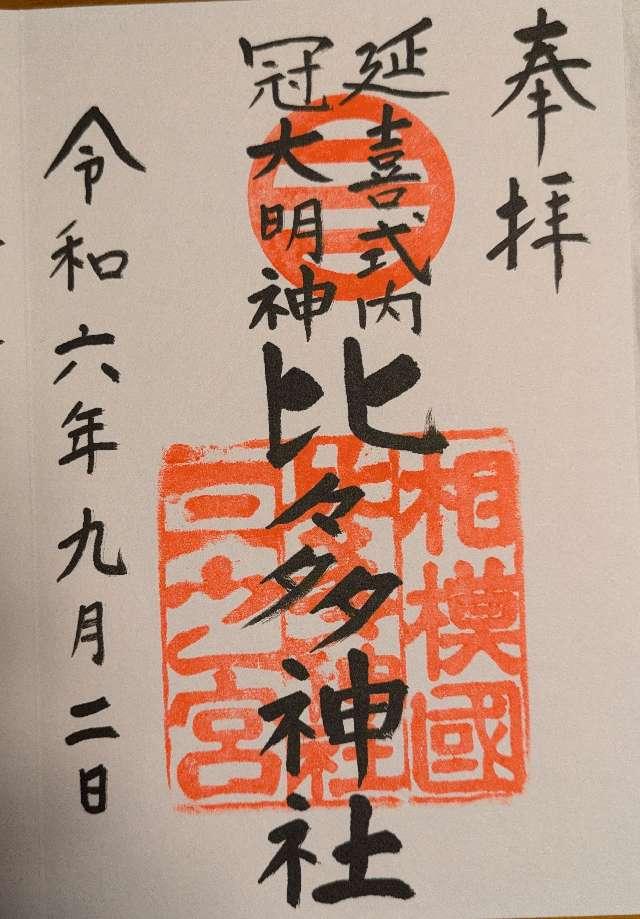 奉拝
延喜式内
冠大明神
比々多神社
令和六年九月二日
相模國
比々多神社
三之宮